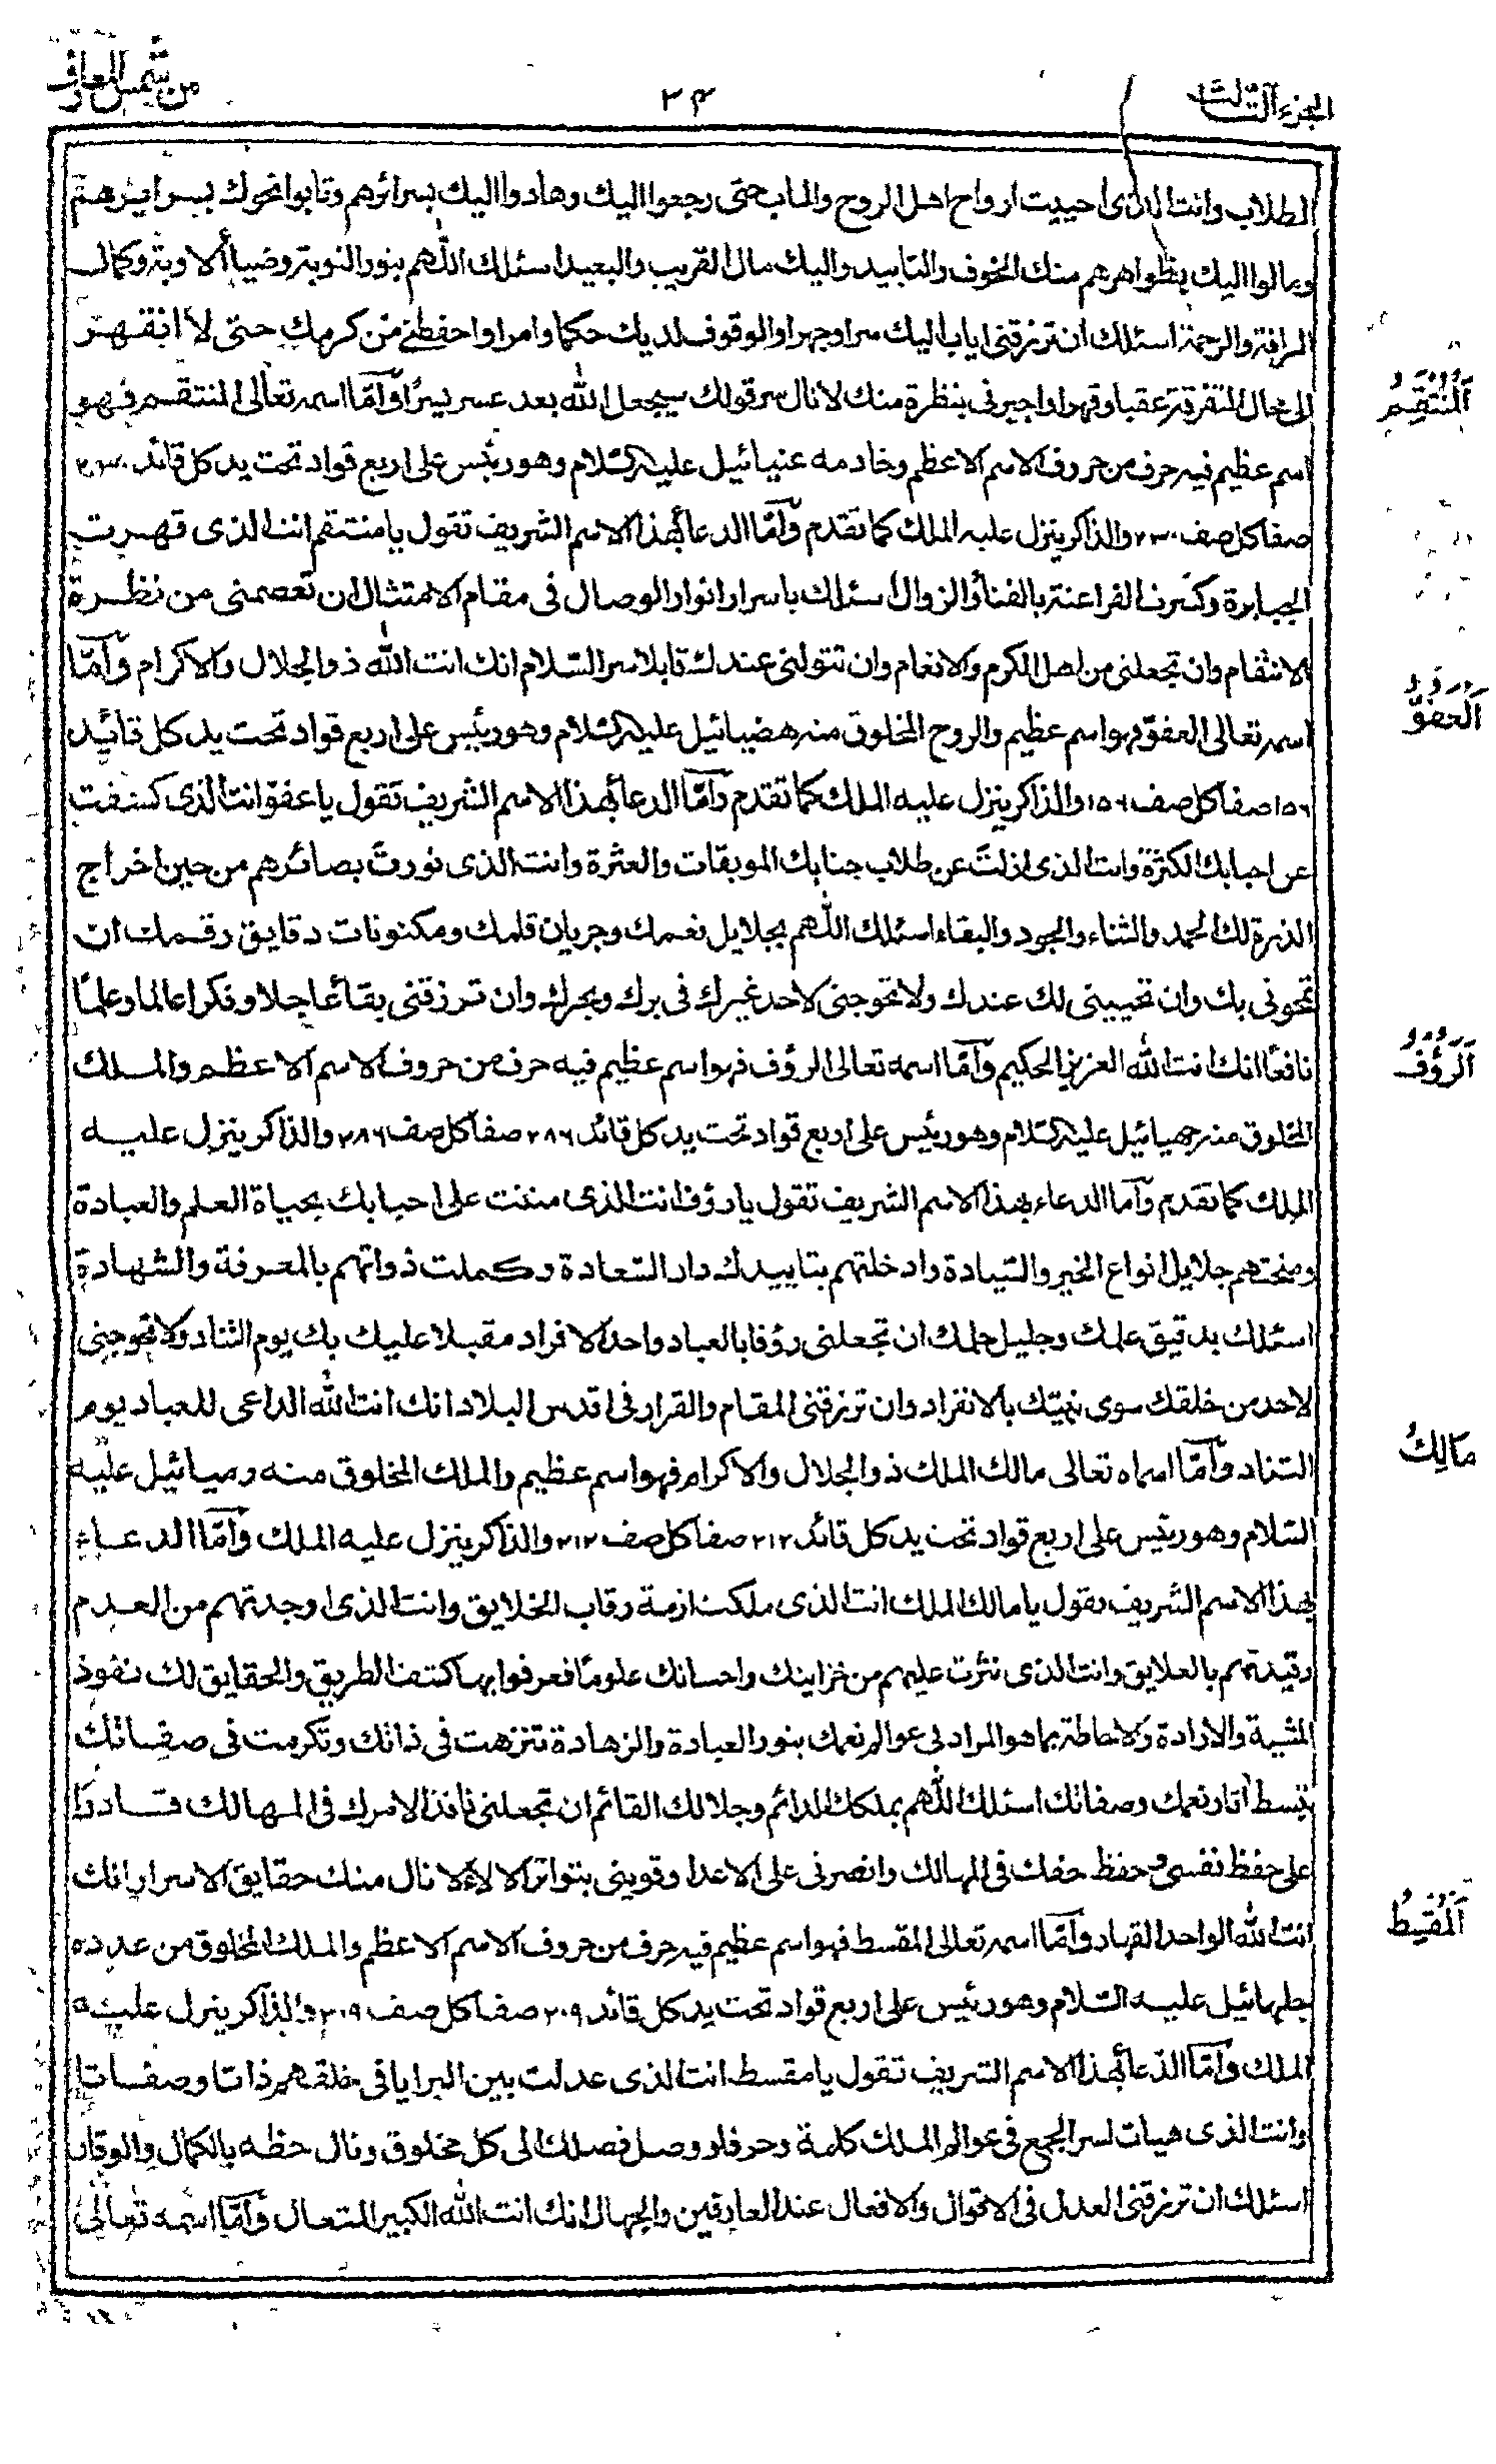 الجزء الثالث
٢٤
من شمس المعارف
الطلاب وانت الذى احييت ارواح اهل الروح والماب حتى رجعوا اليك وهادوا اليك بسرائرهم وتابوا نحوك بسرايرهم
ومالوا اليك بظواهرهم منك الخوف والتابيد واليك مال القريب والبعيد اسئلك اللهم بنور النوبة وضيأ الاوبة وكمال
الرافة والرحمة اسئلك ان ترزقنى ايابا اليك سرا وجهرا والوقوف لديك حكما وامرا واحفظنى من كرمك حتى لا انقهر
الى حال التفرقة عقبا وقهرا واجبرنى بنظرة منك لانال سر قولك سيجعل الله بعد عسر يسرا واما اسمه تعالى المنتقم فهو
اسم عظيم فيه حرف من حروف الاسم الاعظم وخادمه عنيائيل عليه السلام وهو رئيس على اربع قواد تحت يد كل قائد ٦٣٠
صفا كل صف ٦٣٠ والذاكر ينزل عليه الملك كما تقدم واما الدعأ بهذا الاسم الشريف تقول يا منتقم انت الذى قهرت
الجبابرة وكسرت الفراعنة بالفنأ والزوال اسئلك باسرار انوار الوصال فى مقام الامتثال ان تعصمنى من نظرة
الانتقام وان تجعلنى من اهل الكرم والانعام وان تتولنى عندك قابلا سر السلام انك انت الله ذو الجلال والاكرام واما
اسمه تعالى العفو فهو اسم عظيم والروح المخلوق منه هضيائيل عليه السلام وهو رئيس على اربع قواد تحت يد كل قائد
١٥٦ صفا كل صف ١٥٦ والذاكر ينزل عليه الملك كما تقدم واما الدعأ بهذا الاسم الشريف تقول يا عفو انت الذى كشفت
عن احبابك الكثرة وانت الذى ازلت عن طلاب جنابك الموبقات والعثرة وانت الذى نورت بصائرهم من حين اخراج
الذرة لك الحمد والثناء والجود والبقاء اسئلك اللهم بجلايل نعمك وجريان قلمك ومكنونات دقايق رقمك ان
تمحونى بك وان تحيينى لك عندك ولا تحوجنى لاحد غيرك فى برك وبحرك وان ترزقنى بقأ عاجلا وفكرا عالما وعلمًا
نافعًا انك انت الله العزيز الحكيم واما اسمه تعالى الرؤف فهو اسم عظيم فيه حرف من حروف الاسم الاعظم والملك
المخلوق منه جهيائيل عليه السلام وهو رئيس على اربع قواد تحت يد كل قائد ٢٨٦ صفا كل صف ٢٨٦ والذاكر ينزل عليه
الملك كما تقدم واما الدعاء بهذا الاسم الشريف تقول يا رؤف انت الذى مننت على احبابك بحياة العلم والعبادة
ومنحتهم جلايل انواع الخير والسيادة وادخلتهم بتاييدك دار السعادة وكملت ذواتهم بالمعرفة والشهادة
اسئلك بدقيق علمك وجليل حلمك ان تجعلنى رؤفا بالعباد واحد الافراد مقبلا عليك بك يوم التناد ولا تحوجنى
لاحد من خلقك سوى بالانفراد وان ترزقنى المقام والقرار فى اقدس البلاد انك انت الله الداعى للعباد يوم
التناد واما اسماه تعالى مالك الملك ذو الجلال والاكرام فهو اسم عظيم والملك المخلوق منه وميائيل عليه
السلام وهو رئيس على اربع قواد تحت يد كل قائد ٢١٢ صفا كل صف ٢١٢ والذاكر ينزل عليه الملك واما الدعاء
بهذا الاسم الشريف تقول يا مالك الملك انت الذى ملكت ازمة رقاب الخلايق وانت الذى اوجدتهم من العدم
وقيدتهم بالعلايق وانت الذى نثرت عليهم من خزاينك واحسانك علومًا فعرفوا بها كنف الطريق والحقايق لك نفوذ
المشية والارادة والاحاطة بما هو المراد لى عوالم نعمك بنور العبادة والزهادة تنزهت فى ذاتك وتكرمت فى صفاتك
بتسط آثار نعمك وصفاتك اسئلك اللهم بملكك الدائم وجلالك القائم ان تجعلنى نافذ الامرك فى المهالك قادرًا
على حفظ نفسى وحفظ حقك فى المهالك وانصرنى على الاعدا وقوينى بتواتر الالاء لانال منك حقايق الاسرار انك
انت الله الواحد القهار واما اسمه تعالى المقسط فهو اسم عظيم فيه حرف من حروف الاسم الاعظم والملك المخلوق من عدده
جلهائيل عليه السلام وهو رئيس على اربع قواد تحت يد كل قائد ٢٠٩ صفا كل صف ٢٠٩ والذاكر ينزل عليه
الملك واما الدعأ بهذا الاسم الشريف تقول يا مقسط انت الذى عدلت بين البرايا فى خلقهم ذاتا وصفاتا
وانت الذى هيات لسر الجمع فى عوالم الملك كلمة وحرفا ووصل فصلك الى كل مخلوق ونال حظه بالكمال والوقار
اسئلك ان ترزقنى العدل فى الاقوال والافعال عند العارفين والجهال انك انت الله الكبير المتعال واما اسمه تعالى
اَلْمُنْتَقِمُ
اَلْعَفُوُّ
اَلرَّؤُفُ
مَالِكُ
اَلْمُقْسِطُ